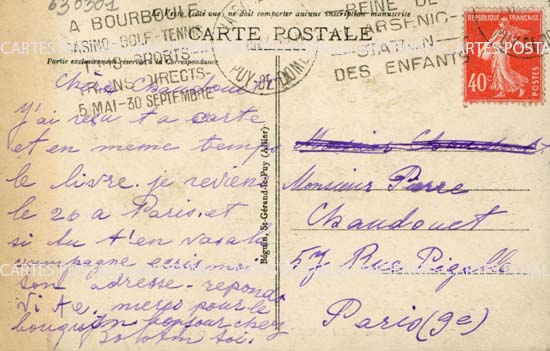 630301
A BOURBOULE
CASINO-GOLF-TENNIS
SPORTS
TRAINS DIRECTS
5 MAI-30 SEPTEMBRE
PUY-DE-DOME
REINE DE
ARSENIC
STATION
DES ENFANTS
REPUBLIQUE FRANÇAISE
40c
POSTES
Côté vue, ne doit comporter aucune inscription manuscrite
CARTE POSTALE
Partie exclusivement réservée à la Correspondance
Béguin, St-Gérand-le-Puy (Allier)
Cher Chaudouet
J'ai reçu ta carte
et en meme temps
le livre. je reviens
le 26 a Paris. et
si tu t'en vas a la
campagne ecris moi
ton adresse. reponds
vite. merci pour le
bouquin bonjour chez
toi.
Monsieur Pierre
Chaudouet
57 Rue Pigalle
Paris (9e)
CARTES POSTALES